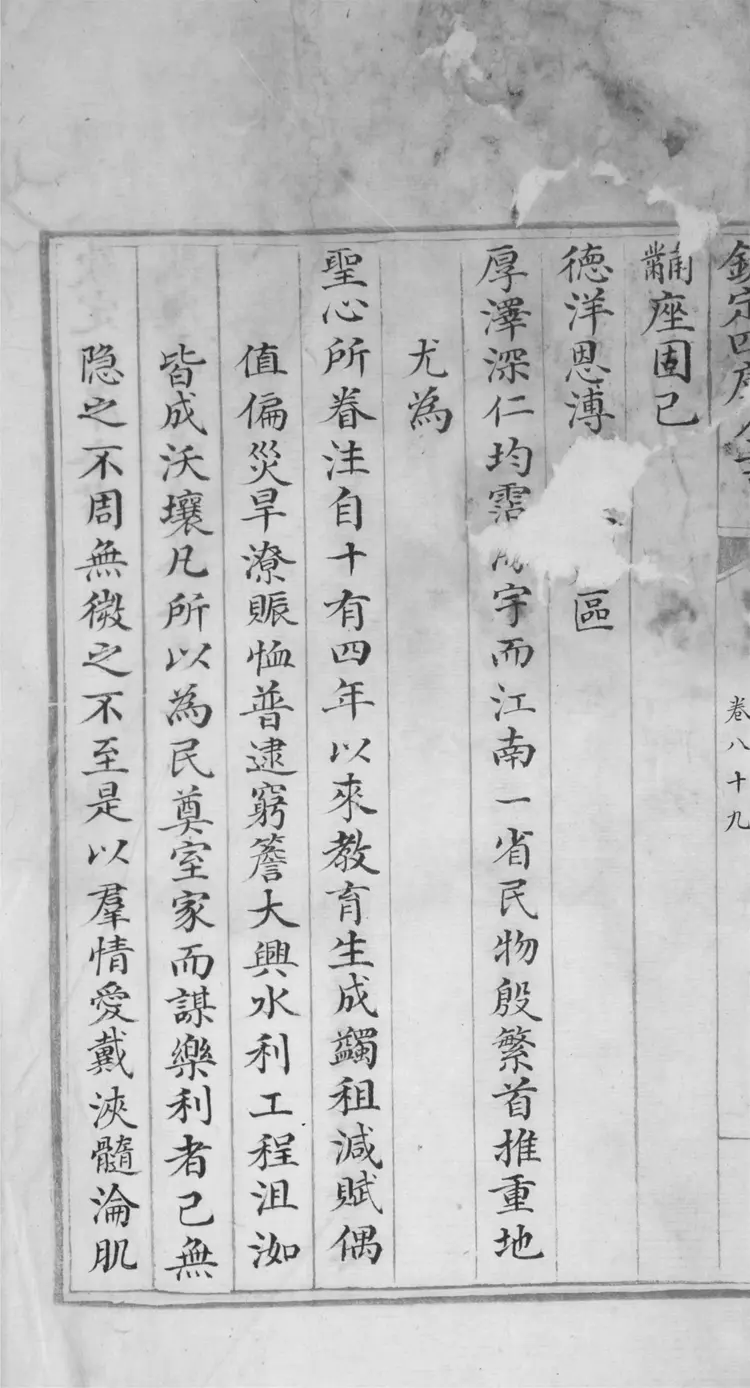 欽定四庫全書
卷八十九
黼座固已
徳洋恩溥區
厚澤深仁均霑宇而江南一省民物殷繁首推重地
尤為
聖心所眷注自十有四年以來教育生成蠲租減賦偶
值偏災旱潦賑恤普逮窮簷大興水利工程沮洳
皆成沃壤凡所以為民奠室家而謀樂利者已無
隐之不周無微之不至是以羣情愛戴浹髓淪肌